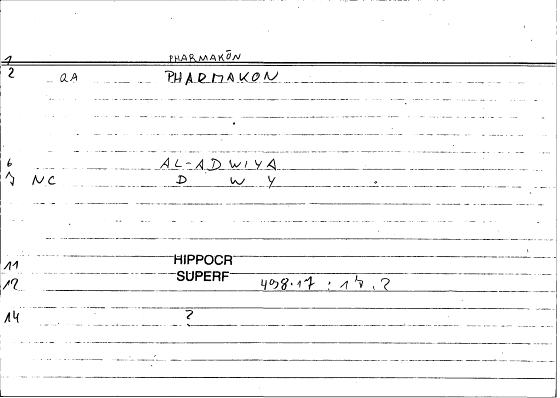 1 PHARMAKŌN
2 QA PHARMAKON
6 AL-ADWIYA
7 NC D W Y
11 HIPPOCR
12 SUPERF 498.17 : 18.2
14 ?